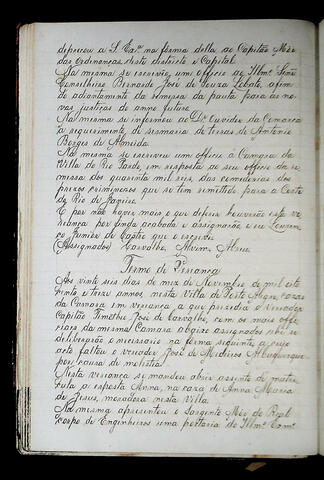 depreçou a S. Exª na forma della ao Capitão Mor
das Ordenanças deste districto e Capital.
Na mesma se escreveu um officio ao Illmº Senr
Conselheiro Bernardo José de Souza Lobato, afim
do adiantamento da remessa da pauta para as no-
vas justiças do anno futuro.
Na mesma se informou ao Dr. Ouvidor da Comarca
o requerimento de sesmaria de terras de Antonio
Borges de Almeida.
Na mesma se escreveu um officio á Camara da
Villa do Rio Pardo, em resposta ao seu officio de re-
messa dos quarenta mil reis, das comedorias dos
prezos criminosos que se tem remettido para a Corte
do Rio de Janeiro.
E por não haver mais o que deferir houverão esta ve-
riança por finda, acabada e assignarão e eu Louren-
ço Junior de Castro que o escrevi.
(Assignados) Carvalho, Alvim, Abreu
Termo de Veriança
Aos vinte seis dias do mez de Novembro de mil oito
centos e treze annos, nesta Villa de Porto Alegre, cazas
da Camara em veriança a que presidio o vereador
Capitão Timotheo José de Carvalho, com os mais offi-
ciaes da mesma Camara abaixo assignados ahi se
deliberarão o necessario na forma seguinte, a cujo
acto faltou o vereador José de Medeiros Albuquerque
por cauza de molestia.
Nesta veriança se mandou abrir assento de matri-
cula a exposta Anna, na caza de Anna Maria
de Jesus, moradora nesta Villa.
Na mesma aprezentou o Sargento Mór do Real
Corpo de Engenheiros uma portaria do Illmº Exmº